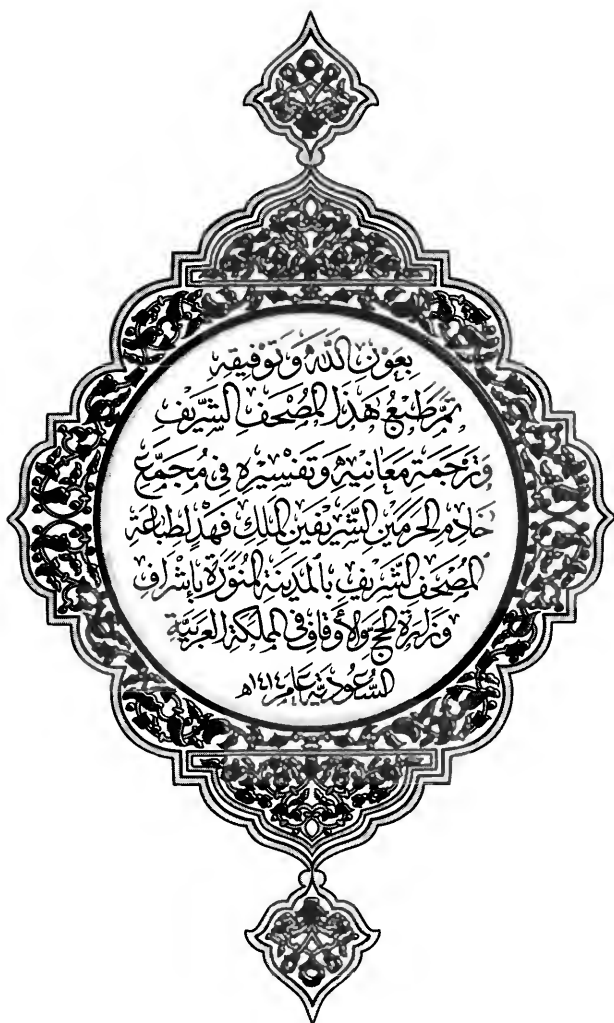 بِعَوْنِ اللهِ وَتَوْفِيقِهِ
تَمَّ طَبْعُ هَذَا المُصْحَفِ الشَّرِيْفِ
وَتَرْجَمَةِ مَعَانِيْهِ وَتَفْسِيْرِهِ فِي مُجَمَّعِ
خَادِمِ الحَرَمَيْنِ الشَّرِيْفَيْنِ المَلِكِ فَهْدٍ لِطِبَاعَةِ
المُصْحَفِ الشَّرِيْفِ بِالمَدِيْنَةِ المُنَوَّرَةِ بِإِشْرَافِ
وَزَارَةِ الحَجِّ وَالأَوْقَافِ فِي المَمْلَكَةِ العَرَبِيَّةِ
السُّعُوْدِيَّةِ عَامَ ١٤١٤هـ